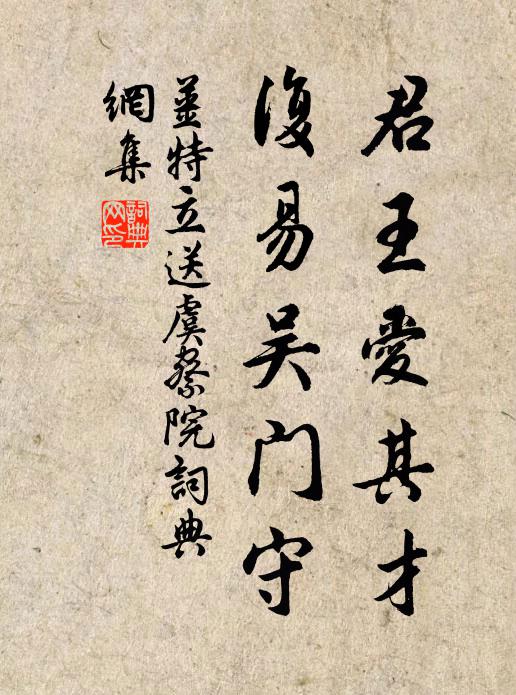 君王愛其才
復易吴门守
薑特立送虞察院詞典
網集
詞典
网印